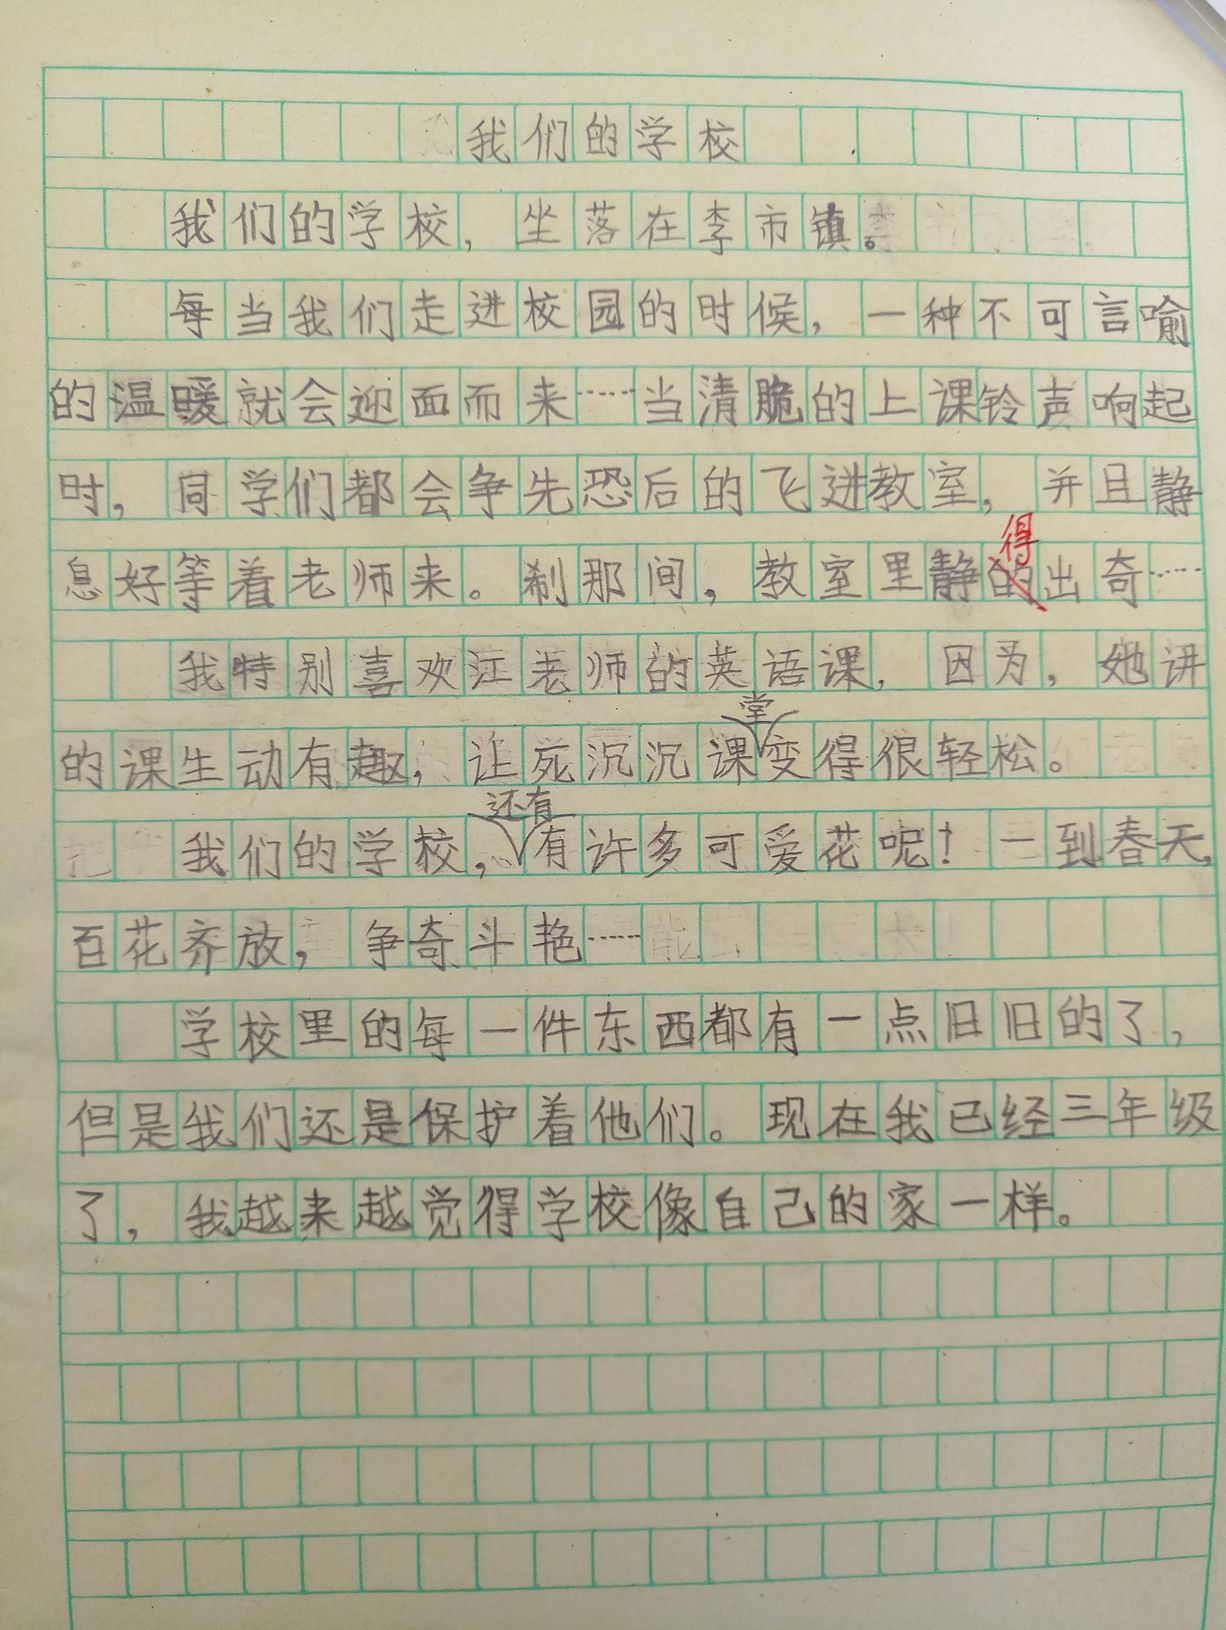 我们的学校
我们的学校，坐落在李市镇。
每当我们走进校园的时候，一种不可言喻
的温暖就会迎面而来……当清脆的上课铃声响起
时，同学们都会争先恐后的飞进教室，并且静
得
息好等着老师来。刹那间，教室里静的出奇……
我特别喜欢江老师的英语课，因为，她讲
堂
的课生动有趣，让死沉沉课变得很轻松。
还有
我们的学校，有许多可爱花呢！一到春天，
百花齐放，争奇斗艳……
学校里的每一件东西都有一点旧旧的了，
但是我们还是保护着他们。现在我已经三年级
了，我越来越觉得学校像自己的家一样。